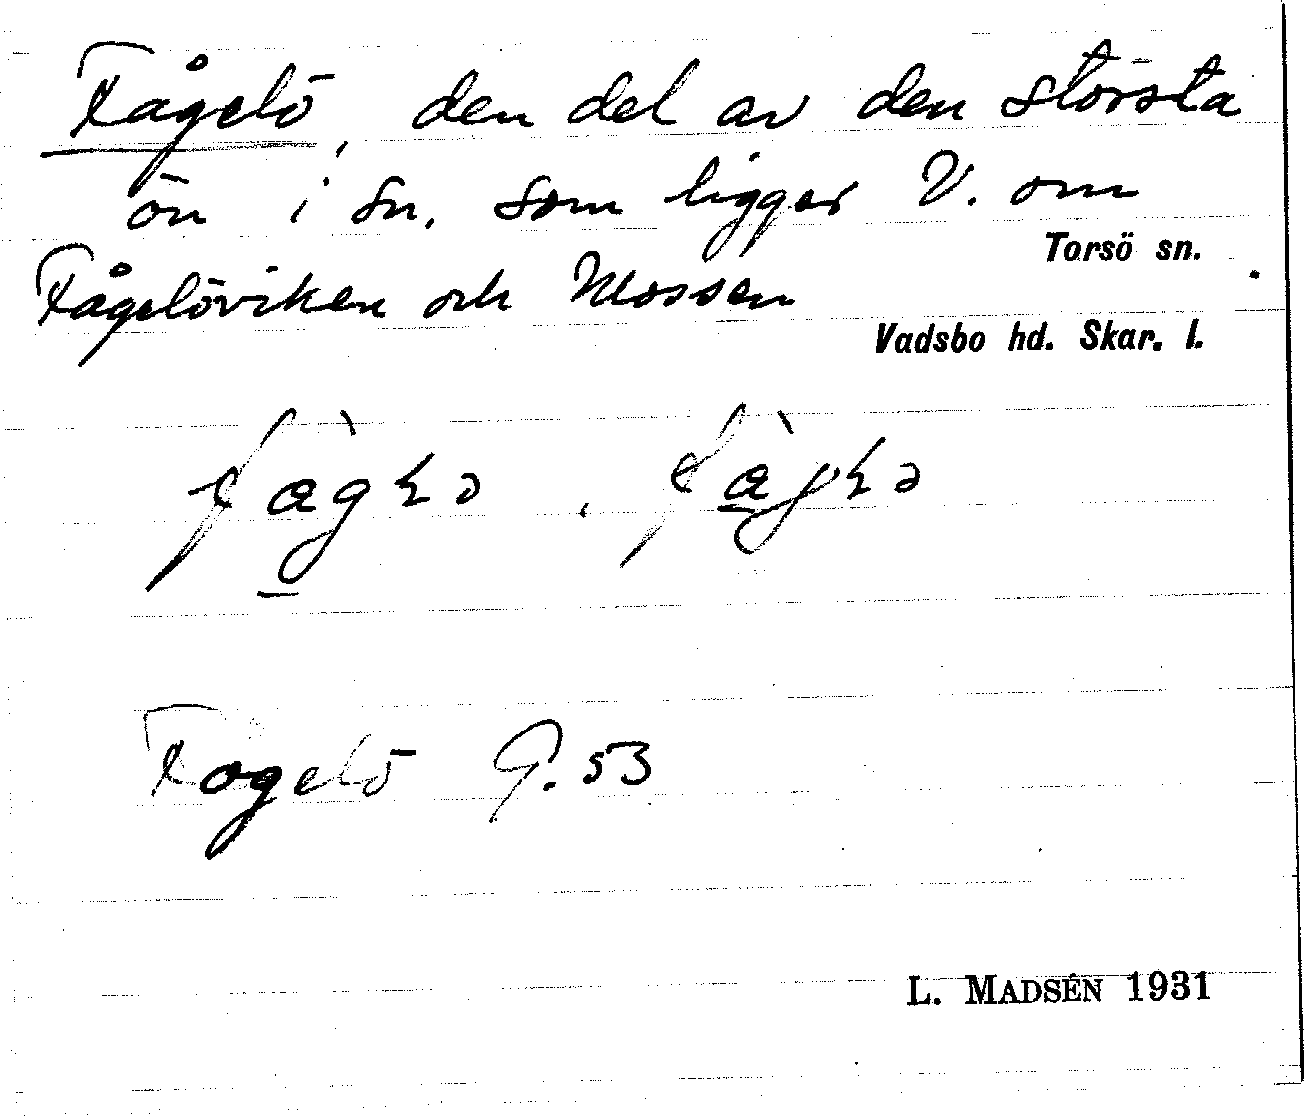 Fågelö, den del av den största
ön i sn. som ligger V. om
Torsö sn.
Fågelöviken och Mossen
Vadsbo hd. Skar. l.
Fogelö G. 53
L. MADSÉN 1931